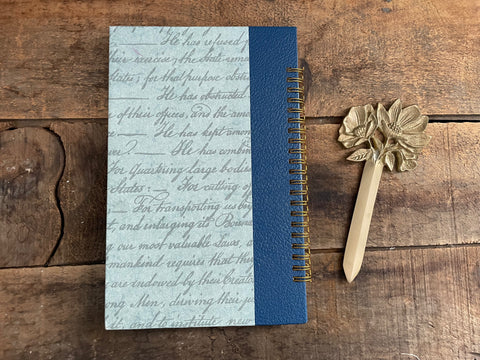 He has refused f
their exercise; the State rema
States; for that purpose obstru
He has obstructed
of their offices, and the amo
He has kept among
He has combin
For Quartering large bodies
States: — For cutting of
— For transporting us bey
and enlarging its Bound
g our most valuable Laws, a
mankind requires that they
are endowed by their Creator
ong Men, deriving their ju
it, and to institute new